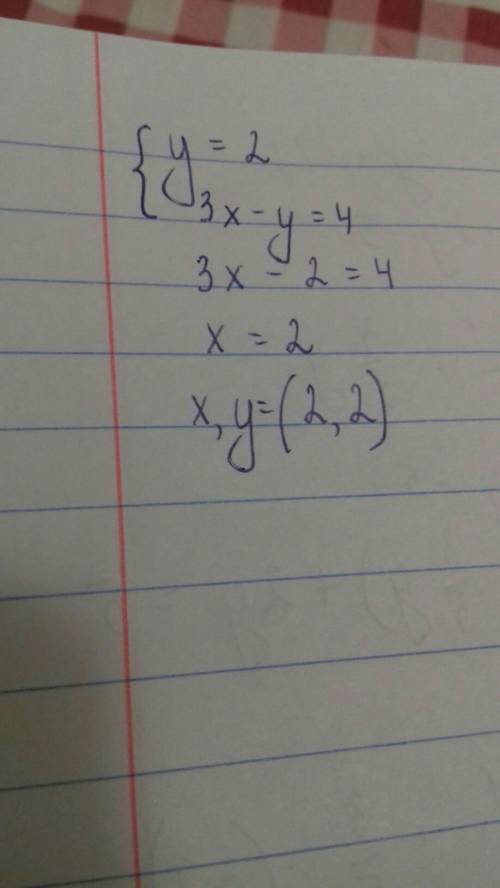 { y = 2
3x - y = 4
3x - 2 = 4
x = 2
x, y = (2, 2)